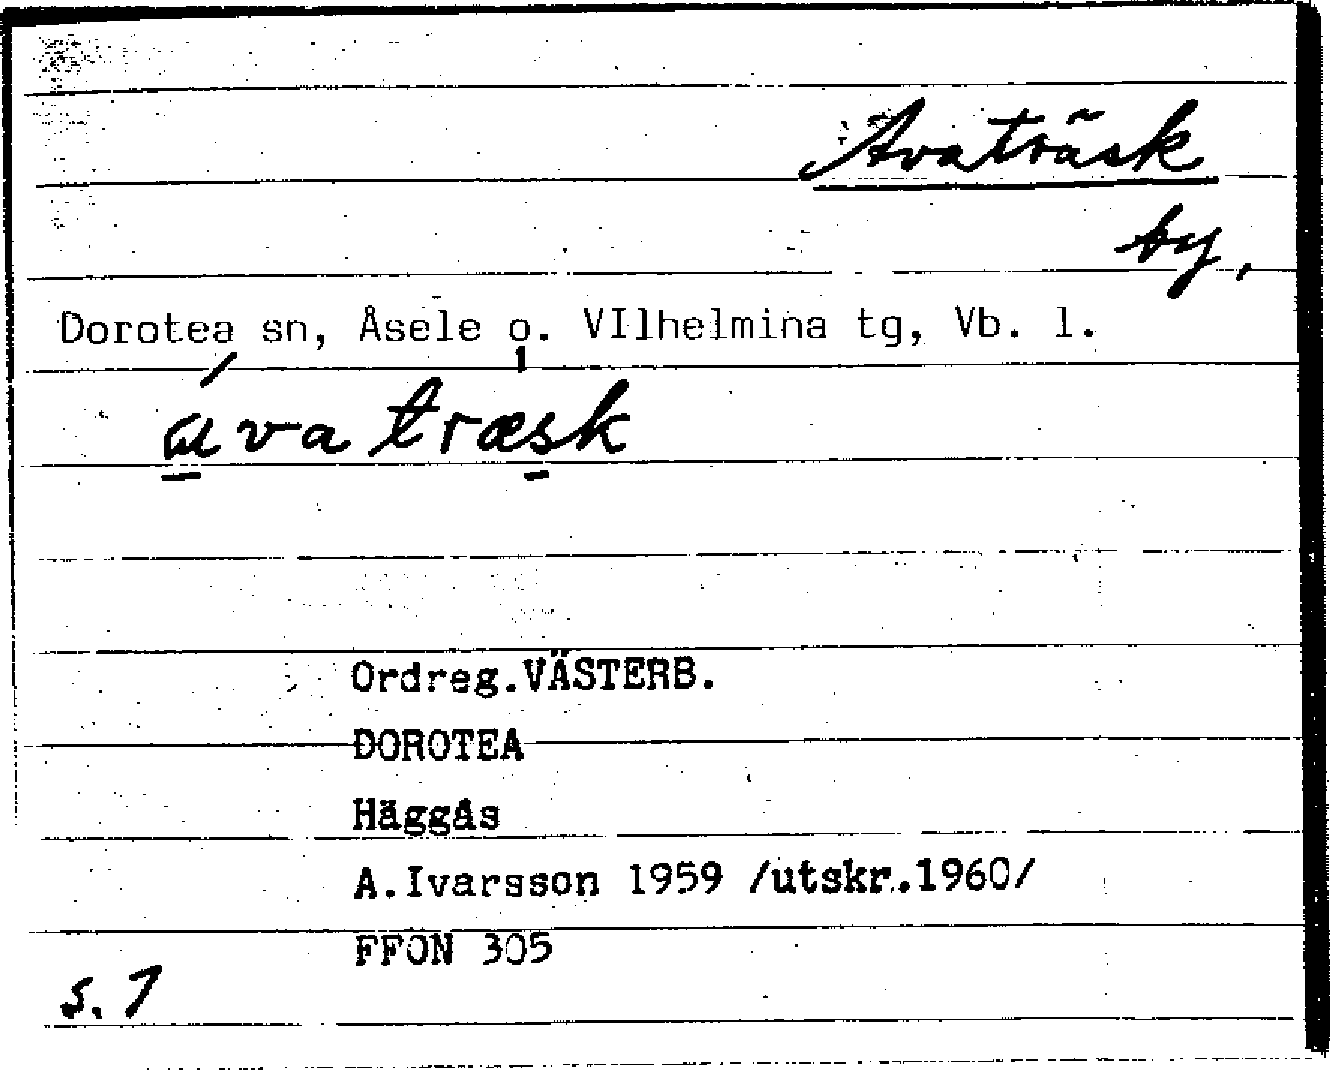 Avaträsk
by,
Dorotea sn, Åsele o. VIlhelmina tg, Vb. l.
ava træsk
Ordreg.VÄSTERB.
DOROTEA
Häggås
A.Ivarsson 1959 /utskr.1960/
FFÖN 305
s. 7